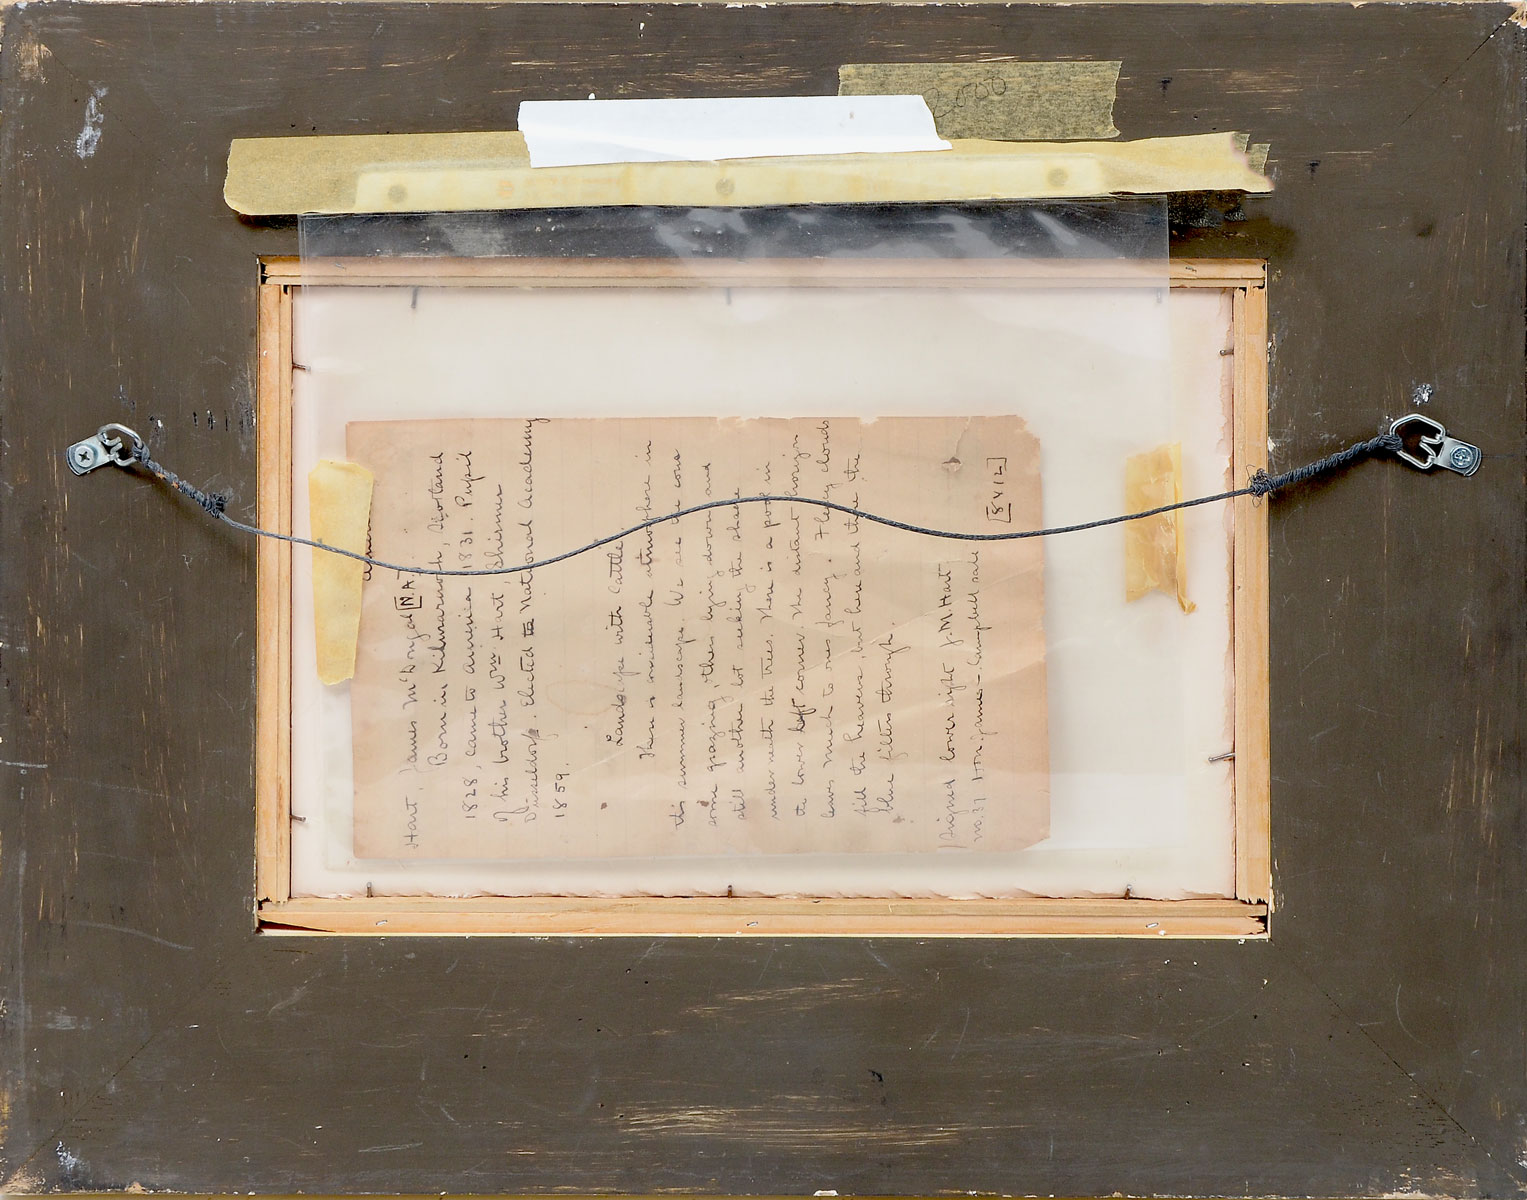 3000
Hart, James McDougal [N.A.]
Born in Kilmarnock, Scotland
1828, came to America 1831. Pupil
of his brother Wm Hart, Shirmer
Dusseldorf. Elected to National Academy
1859.
Landscape with Cattle
There is considerable atmosphere in
this summer landscape. We see the cows
some grazing, others lying down and
still another lot seeking the shade
underneath the trees. There is a pool in
the lower left corner. The distant horizon
leaves much to ones fancy. Fleecy clouds
fill the heavens, but here and there the
blue filters through.
Signed lower right J. M. Hart [8x12]
No. 37 Hon. James Campbell sale